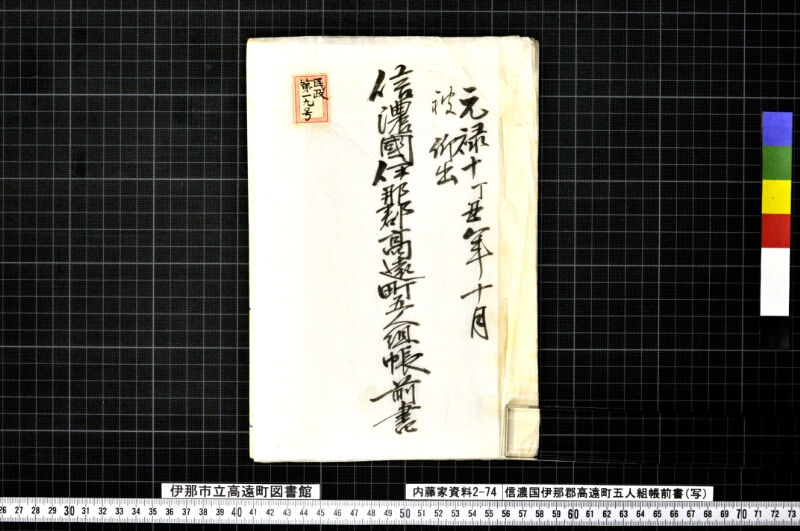 元禄十丁丑年十月
被 仰出
信濃國伊那郡高遠町五人組帳前書
民政
第一九号
伊那市立高遠町図書館
内藤家資料2-74 信濃国伊那郡高遠町五人組帳前書(写)
26 27 28 29 30 31 32 33 34 35 36 37 38 39 40 41 42 43 44 45 46 47 48 49 50 51 52 53 54 55 56 57 58 59 60 61 62 63 64 65 66 67 68 69 70 71 72 73